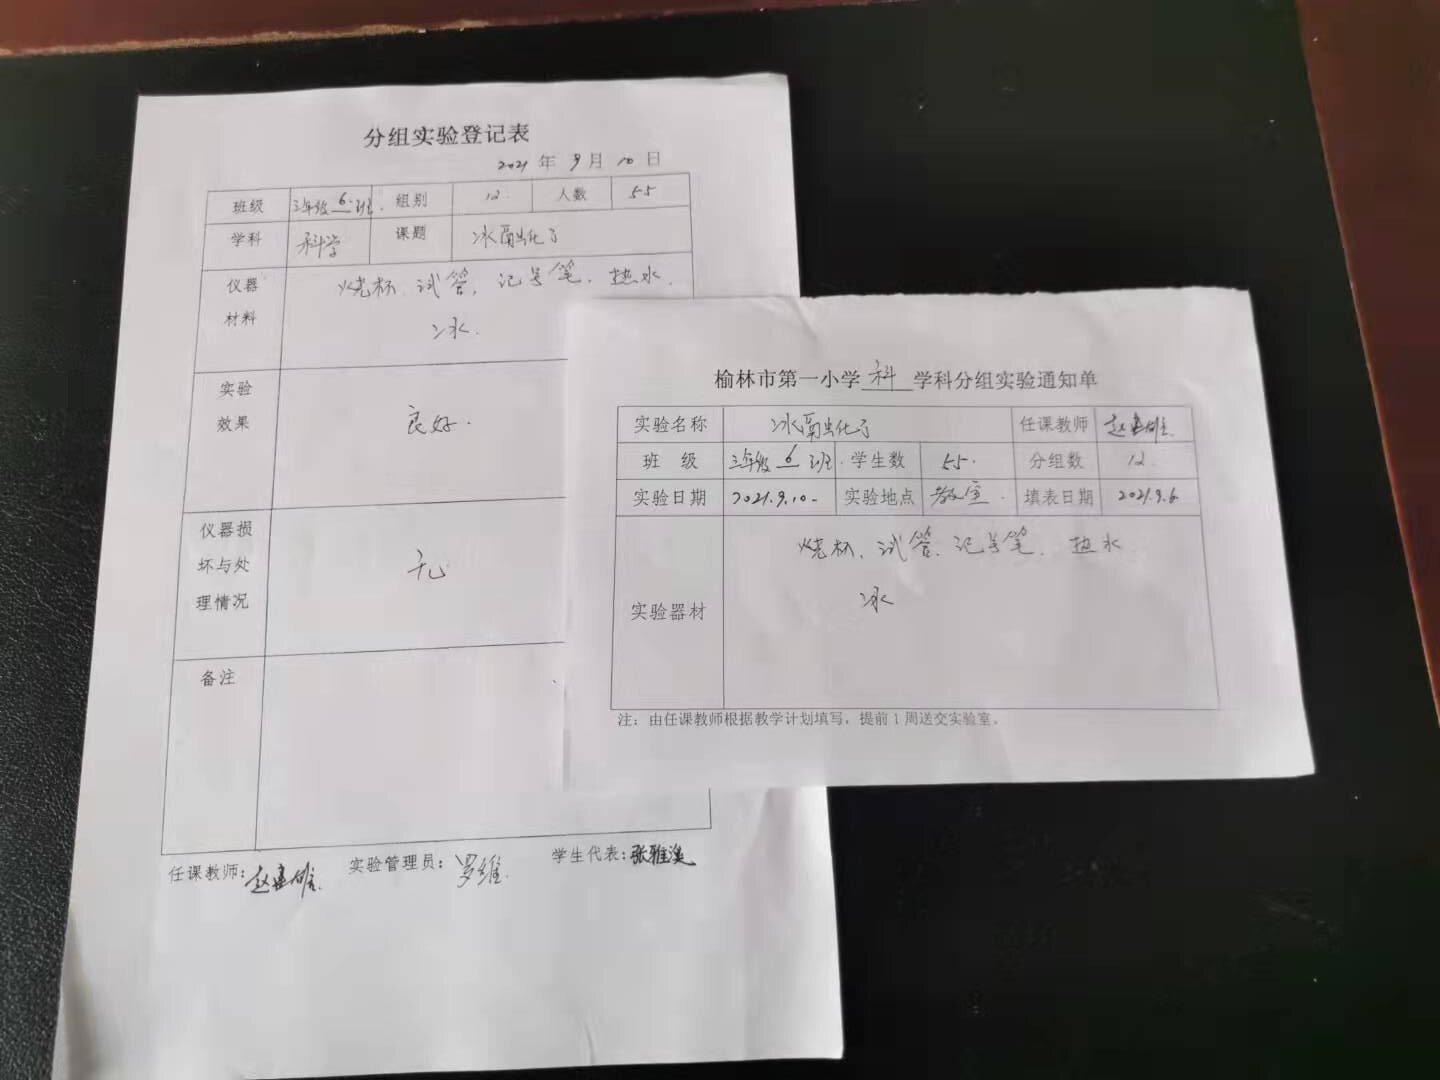 分组实验登记表
2021 年 9 月 10 日
班级 三年级 6 班. 组别 12. 人数 55
学科 科学 课题 冰融化了
仪器材料 烧杯、试管、记号笔、热水、
冰.
实验效果 良好.
仪器损坏与处理情况 无
备注
任课教师: 实验管理员: 罗维. 学生代表: 张雅
榆林市第一小学 科 学科分组实验通知单
实验名称 冰融化了 任课教师
班 级 三年级 6 班. 学生数 55. 分组数 12.
实验日期 2021.9.10. 实验地点 教室. 填表日期 2021.9.6
实验器材 烧杯、试管、记号笔、热水
冰
注：由任课教师根据教学计划填写，提前1周送交实验室。